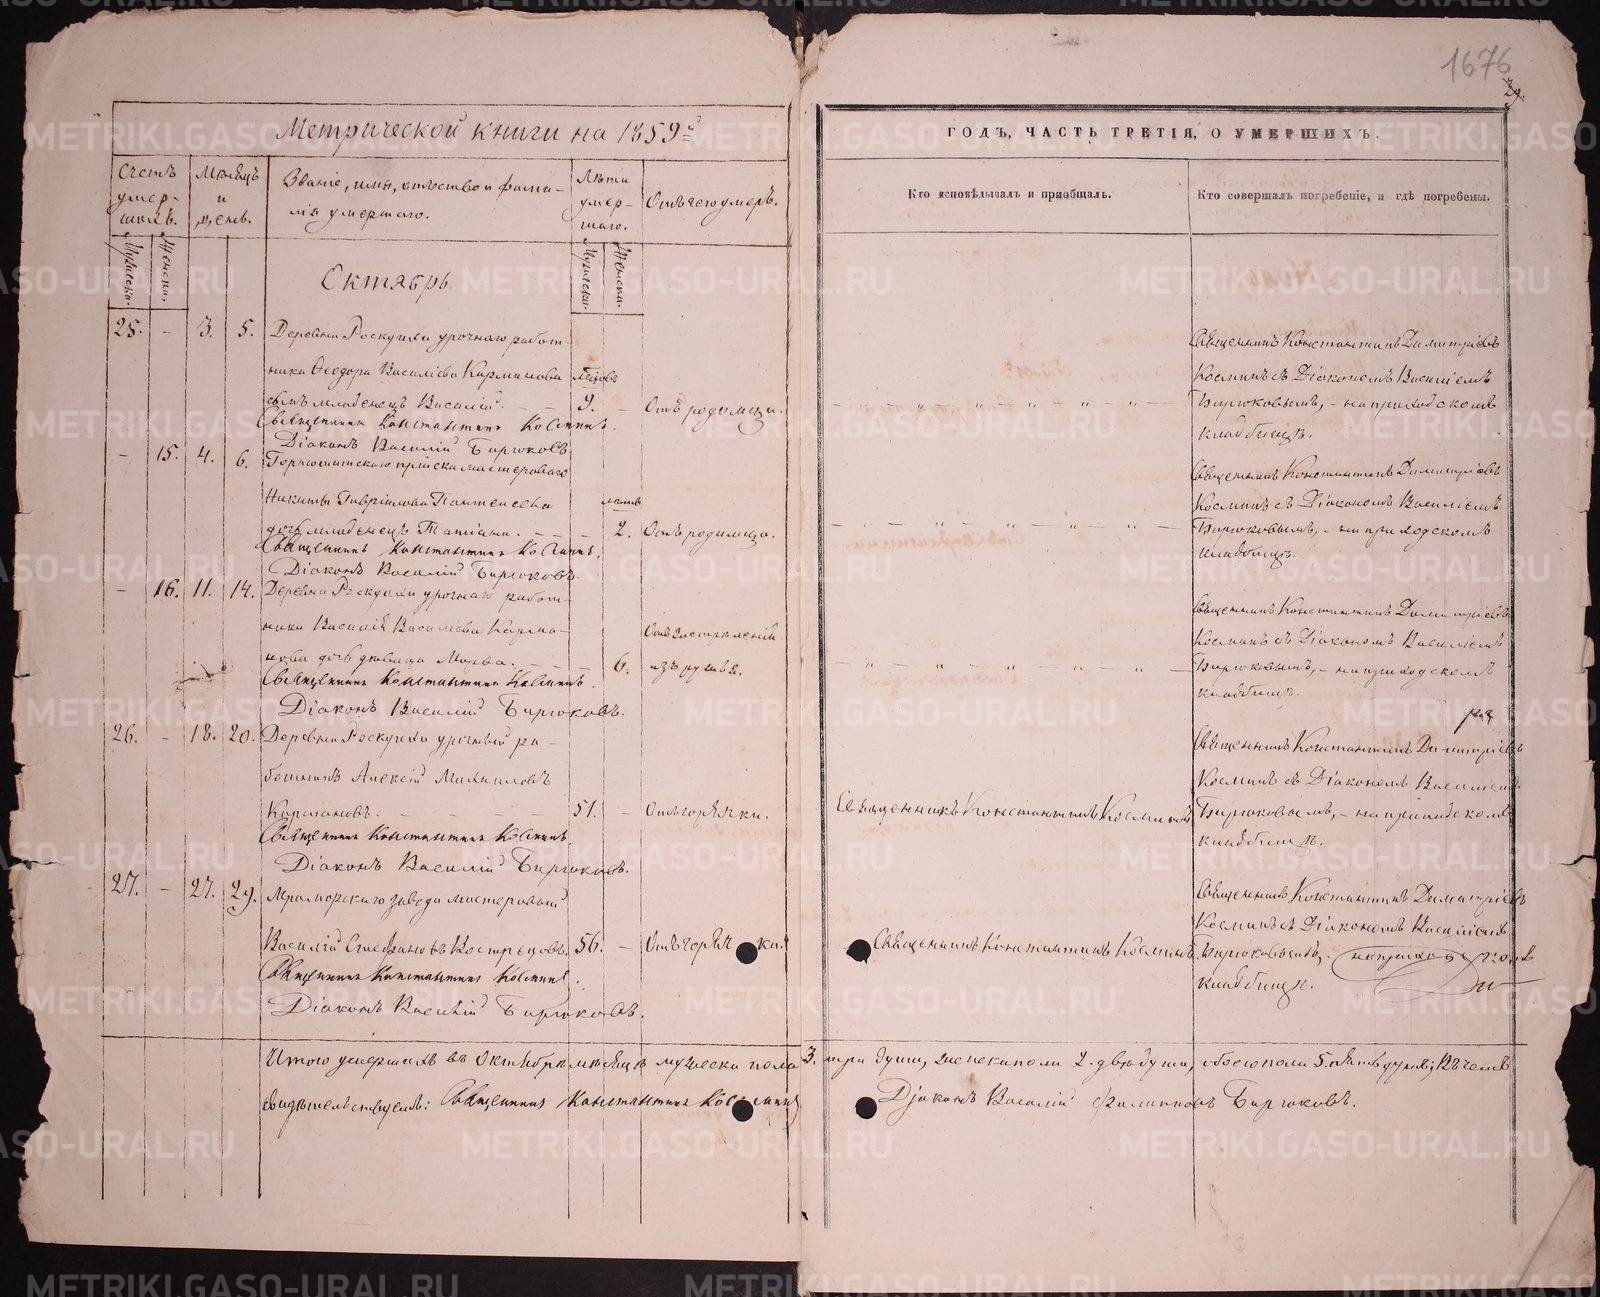 1676
29.
Метрической книги на 1859й
ГОДЪ, ЧАСТЬ ТРЕТІЯ, О УМЕРШИХЪ.
Счетъ умер-шихъ.
Мѣсяцъ и день.
Званіе, имя, отчество и фами-
лія умершаго.
Лѣта умер-шаго.
Отъ чего умеръ.
Кто исповѣдывалъ и пріобщалъ.
Кто совершалъ погребеніе, и гдѣ погребены.
Мужеска.
Женска.
Мужеска.
Женска.
Октябрь.
25. - 3. 5. Деревни Роскухи урочнаго работ-
ника Ѳеодора Василіева Карманова
сынъ младенецъ Василій. 9. - Отъ родимца.
Священникъ Константинъ Косминъ.
Діаконъ Василій Бирюковъ.
Священникъ Константинъ Димитріевъ
Косминъ съ Діакономъ Василіемъ
Бирюковымъ, - на приходскомъ
кладбищѣ.
- 15. 4. 6. мастероваго
Никиты Гаврилова Пантелеева лѣтъ
дочь младенецъ Татіана. 2. Отъ родимца.
Священникъ Константинъ Косминъ.
Діаконъ Василій Бирюковъ.
Священникъ Константинъ Димитріевъ
Косминъ съ Діакономъ Василіемъ
Бирюковымъ, - на приходскомъ
кладбищѣ.
- 16. 11. 14. Деревни Роскухи урочнаго работ-
ника Василія Василіева Карма-
нова дочь дѣвица Марѳа. 6. изъ ружья.
Священникъ Константинъ Косминъ.
Діаконъ Василій Бирюковъ.
Священникъ Константинъ Димитріевъ
Косминъ съ Діакономъ Василіемъ
Бирюковымъ, - на приходскомъ
кладбищѣ.
26. - 18. 20. Деревни Роскухи урочный ра-
ботникъ Алексій Михаиловъ
Кармановъ. 51. - Отъ горячки.
Священникъ Константинъ Косминъ.
Діаконъ Василій Бирюковъ.
Священникъ Константинъ Косминъ
Священникъ Константинъ Димитріевъ
Косминъ съ Діакономъ Василіемъ
Бирюковымъ, - на приходскомъ
кладбищѣ.
27. - 27. 29. Мраморскаго завода мастеровый
Василій Стефановъ Костреѵовъ. 56. - Отъ горячки.
Священникъ Константинъ Косминъ.
Діаконъ Василій Бирюковъ.
Священникъ Константинъ Косминъ.
Священникъ Константинъ Димитріевъ
Косминъ съ Діакономъ Василіемъ
Бирюковымъ, - на приходскомъ
кладбищѣ.
Итого умершихъ въ Октябрѣ мѣсяцѣ мужеска пола 3. три души, женска пола 2. двѣ души, обоего пола 5. пять душъ; въ чемъ
свидѣтельствуемъ: Священникъ Константинъ Косминъ
Діаконъ Василій Филипповъ Бирюковъ.
METRIKI.GASO-URAL.RU